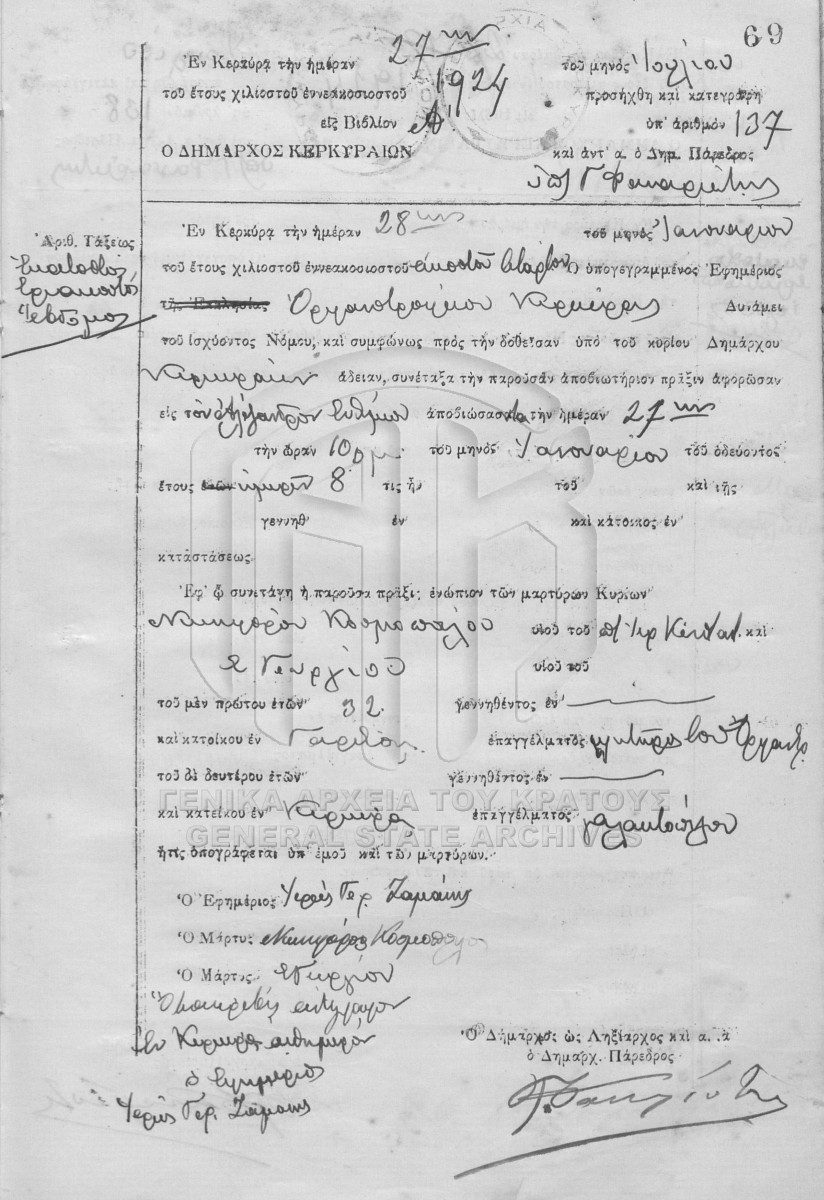 69
Ἐν Κερκύρᾳ τὴν ἡμέραν 27ην τοῦ μηνὸς Ἰουλίου
τοῦ ἔτους χιλιοστοῦ ἐννεακοσιοστοῦ 1924 προσήχθη καὶ κατεγράφη
εἰς Βιβλίον Α' ὑπ' ἀριθμὸν 137
Ο ΔΗΜΑΡΧΟΣ ΚΕΡΚΥΡΑΙΩΝ καὶ ἀντ' α. ὁ Δημ. Πάρεδρος
Ἀριθ. Τάξεως
Ἑκατοστὸς
τριακοστὸς
ἕβδομος
Ἐν Κερκύρᾳ τὴν ἡμέραν 28ην τοῦ μηνὸς Ἰανουαρίου
τοῦ ἔτους χιλιοστοῦ ἐννεακοσιοστοῦ εἰκοστοῦ τετάρτου Ὁ ὑπογεγραμμένος Ἐφημέριος
τῆς Ἐκκλησίας Ὀρφανοτροφείου Κερκύρας Δυνάμει
τοῦ ἰσχύοντος Νόμου, καὶ συμφώνως πρὸς τὴν δοθεῖσαν ὑπὸ τοῦ κυρίου Δημάρχου
Κερκυραίων ἄδειαν, συνέταξα τὴν παροῦσαν ἀποβιωτήριον πρᾶξιν ἀφορῶσαν
εἰς τὸν Ἀλέξανδρον Εὐθυμίου ἀποβιώσαντα τὴν ἡμέραν 27ην
τὴν ὥραν 10 τοῦ μηνὸς Ἰανουαρίου τοῦ ὁδεύοντος
ἔτους ἐτῶν ἡμερῶν 8 τις ἦ τοῦ καὶ τῆς
γεννηθ' ἐν καὶ κάτοικος ἐν
καταστάσεως
Ἐφ' ᾧ συνετάγη ἡ παροῦσα πρᾶξις ἐνώπιον τῶν μαρτύρων Κυρίων
Νικηφόρου Κοσμοπούλου υἱοῦ τοῦ καὶ
Σ Γεωργίου υἱοῦ τοῦ
τοῦ μὲν πρώτου ἐτῶν 32 γεννηθέντος ἐν
καὶ κατοίκου ἐν Γαρίτσῃ ἐπαγγέλματος
τοῦ δὲ δευτέρου ἐτῶν γεννηθέντος ἐν
καὶ κατοίκου ἐν Κερκύρᾳ ἐπαγγέλματος γαλακτοπώλου
ἥτις ὑπογράφεται ὑπ' ἐμοῦ καὶ τῶν μαρτύρων.
ΓΕΝΙΚΑ ΑΡΧΕΙΑ ΤΟΥ ΚΡΑΤΟΥΣ
GENERAL STATE ARCHIVES
Ὁ Ἐφημέριος Ἱερεὺς Γερ.
Ὁ Μάρτυς Νικηφόρος Κοσμόπουλος
Ὁ Μάρτυς Σ Γεωργίου
ἀντίγραφον
Ἐν Κερκύρᾳ αὐθημερόν
ὁ Ἐφημέριος
Ἱερεὺς Γερ.
Ὁ Δήμαρχος ὡς Ληξίαρχος καὶ α.ἀ
ὁ Δημαρχ. Πάρεδρος